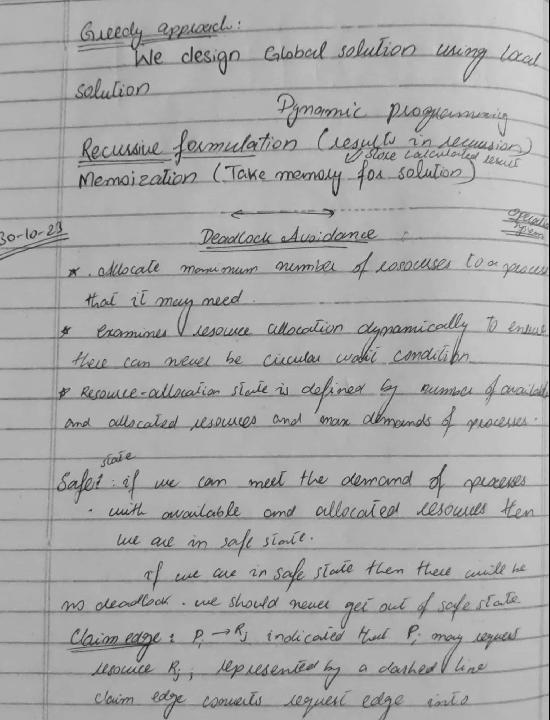 Greedy approach:
We design Global solution using local
solution
Dynamic programming
Recursive formulation (results in recursion)
store calculated result
Memoization (Take memory for solution)
30-10-23
Operating
System
Deadlock Avoidance
* . Allocate maximum number of resources to a process
that it may need.
* examines resource allocation dynamically to ensure
there can never be circular wait condition
* Resource-allocation state is defined by number of available
and allocated resources and max demands of processes.
state
Safe : if we can meet the demand of processes
. with available and allocated resources then
we are in safe state.
if we are in safe state then there will be
no deadlock. we should never get out of safe state.
Claim edge : Pi → Rj indicated that Pi may request
resource Rj ; represented by a dashed line
claim edge converts request edge into